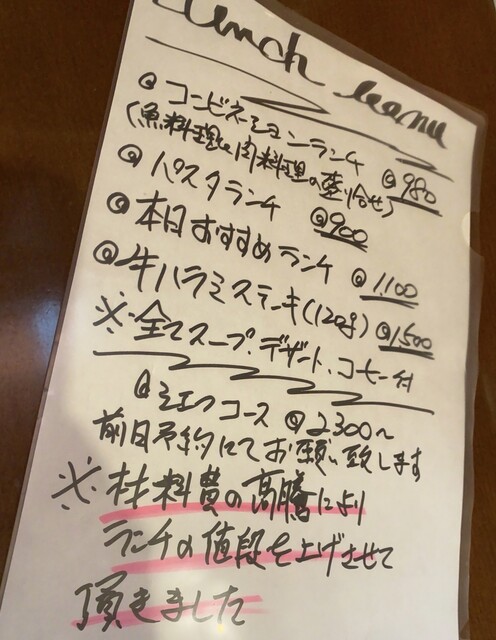 Lunch Menu
@ コンビネーションランチ @980
(魚料理と肉料理の盛り合せ)
@ パスタランチ @900
@ 本日おすすめランチ @1100
@ 牛ハラミステーキ(120g) @1,500
※全てスープ、デザート、コーヒー付
コース @2300〜
前日予約にてお願い致します
※材料費の高騰により
ランチの値段を上げさせて
頂きました